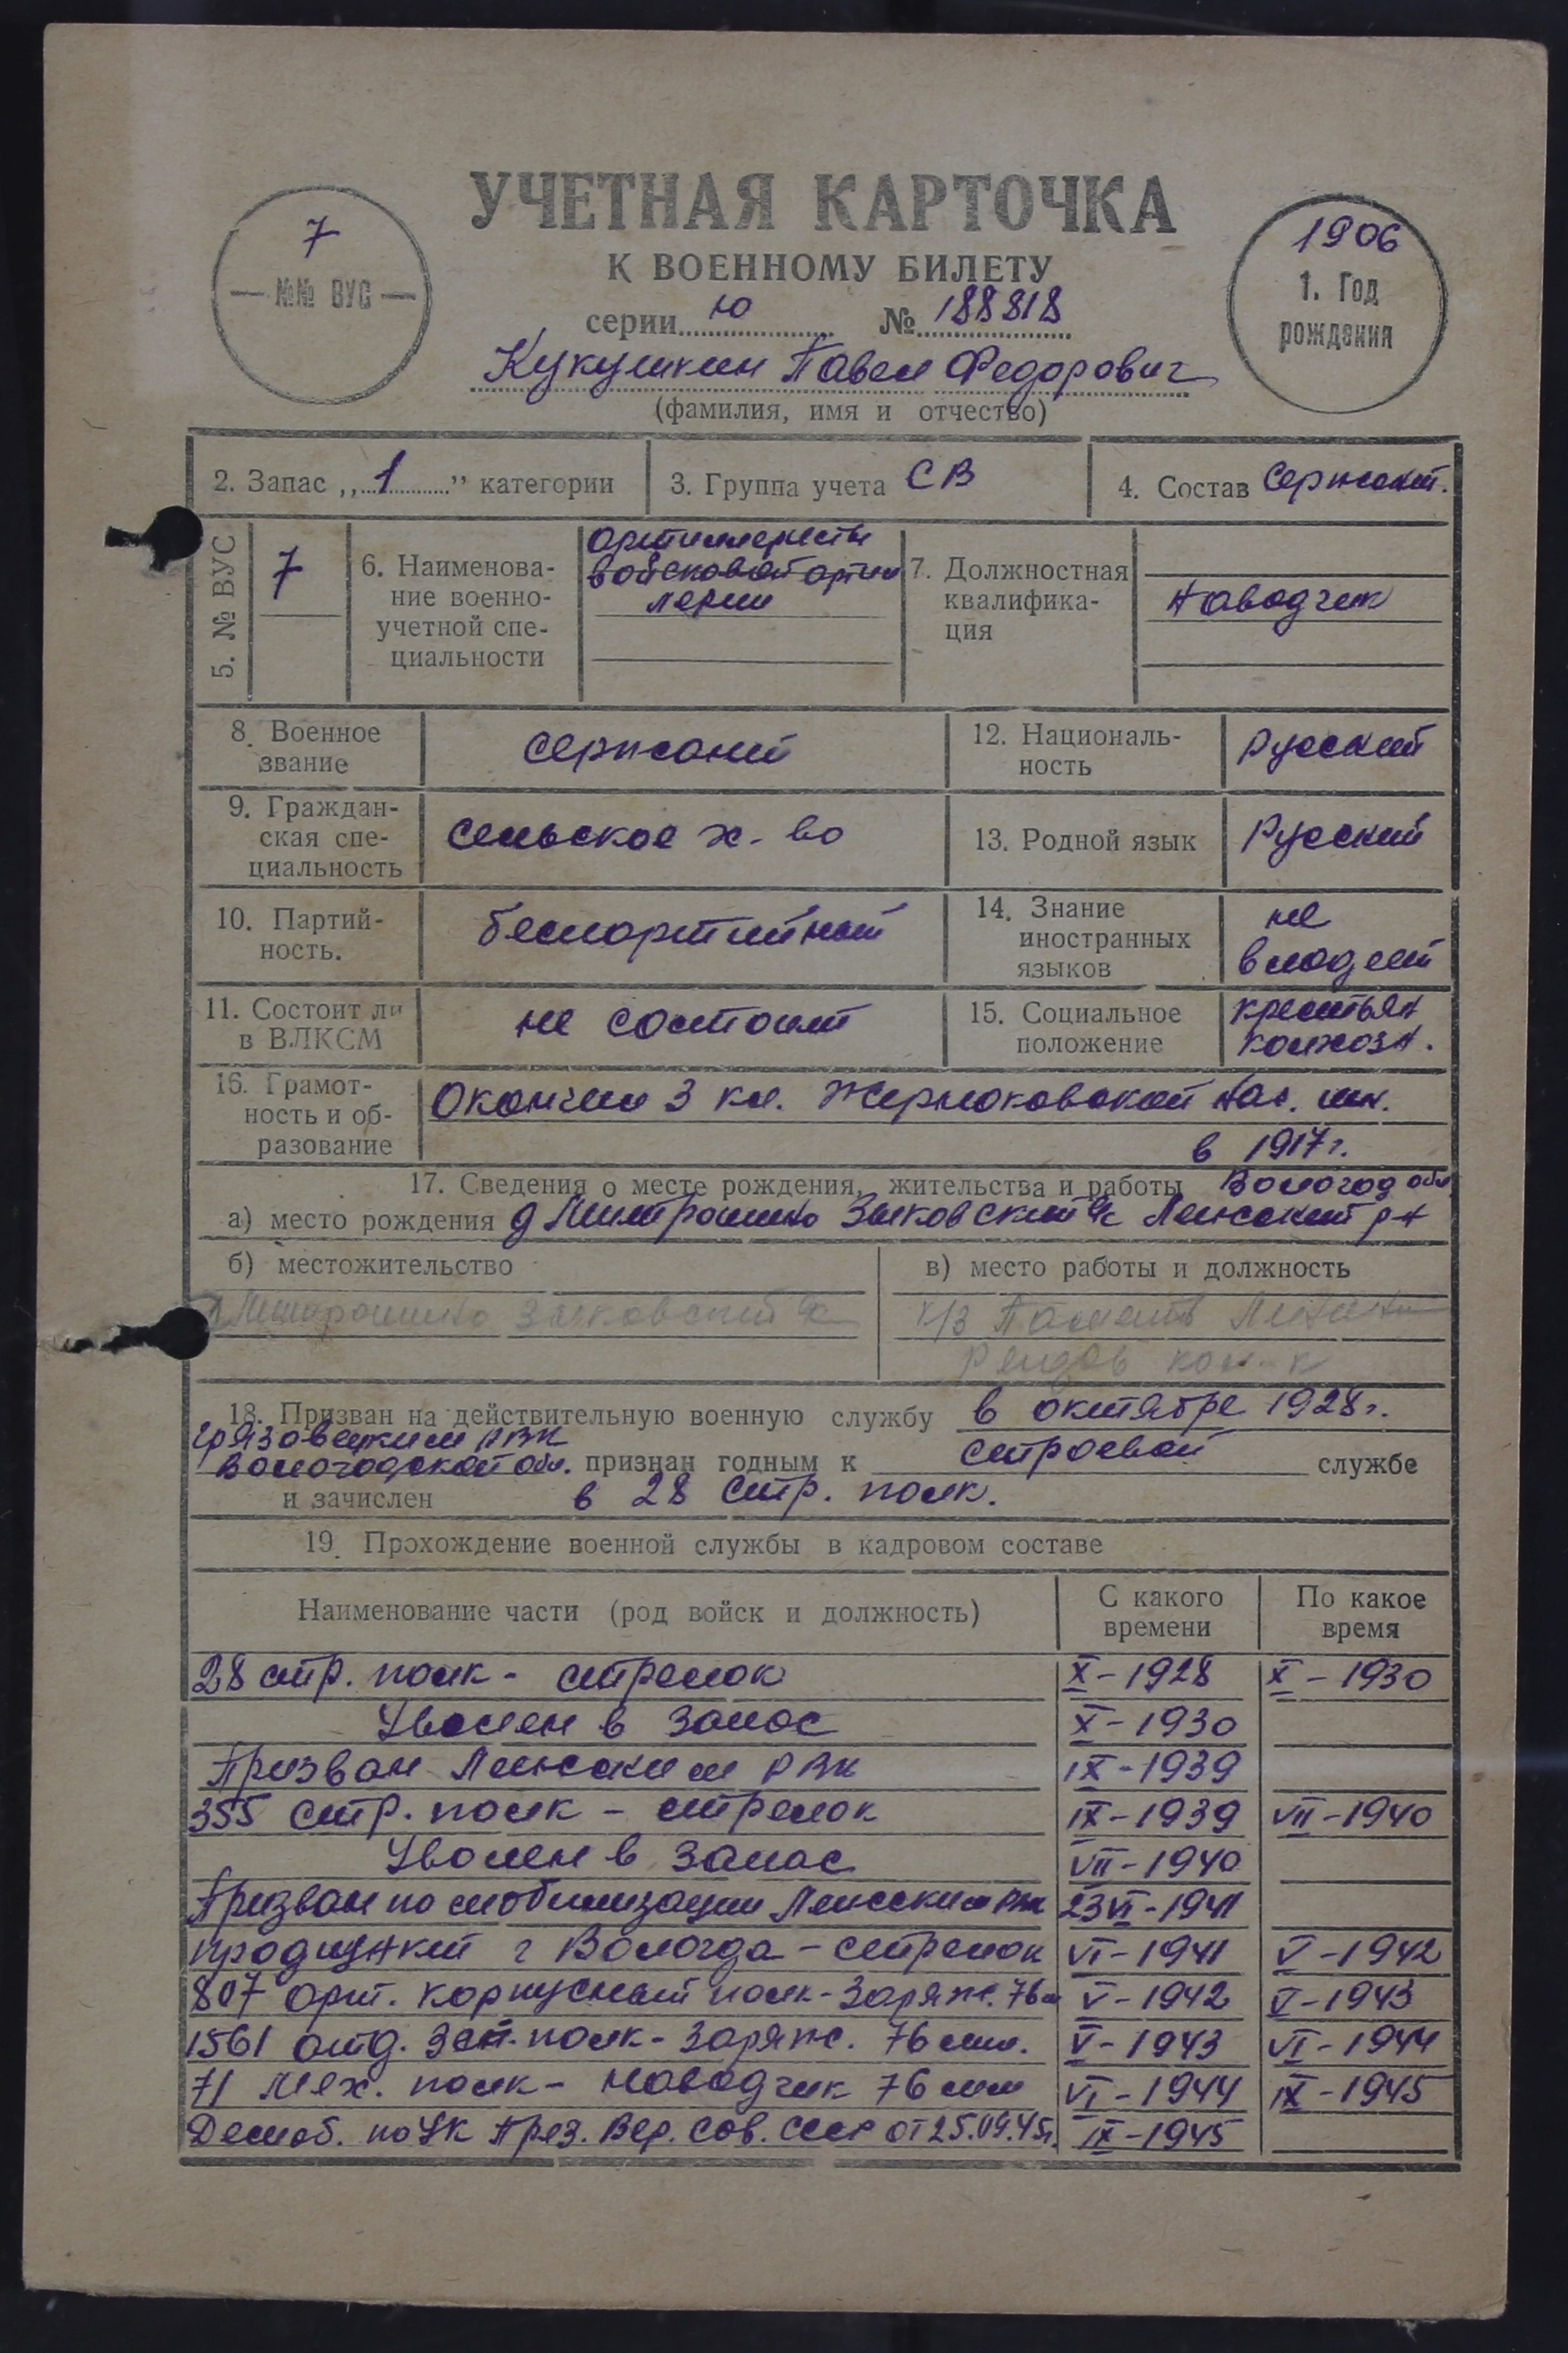 УЧЕТНАЯ КАРТОЧКА
К ВОЕННОМУ БИЛЕТУ
серии ю № 188818
7
№№ ВУС
1906
1. Год
рождения
Кукушкин Павел Федорович
(фамилия, имя и отчество)
2. Запас „1” категории
3. Группа учета СВ
4. Состав Сержант.
5. № ВУС
7
6. Наименова-
ние военно-
учетной спе-
циальности
артиллеристы
войсковой артил
лерии
7. Должностная
квалифика-
ция
наводчик
8. Военное
звание
сержант
12. Националь-
ность
Русский
9. Граждан-
ская спе-
циальность
сельское х-во
13. Родной язык
Русский
10. Партий-
ность.
беспартийный
14. Знание
иностранных
языков
не
владеет
11. Состоит ли
в ВЛКСМ
не состоит
15. Социальное
положение
крестьян
колхозн.
16. Грамот-
ность и об-
разование
Окончил 3 кл. нач. шк.
в 1917 г.
17. Сведения о месте рождения, жительства и работы Вологод обл
а) место рождения д Митрошино Зыковский с/с Лежский р-н
б) местожительство
д Митрошино Зыковский с/с
в) место работы и должность
к/з Память Ленина
рядов кол-к
18. Призван на действительную военную службу в октябре 1928 г.
Грязовецким РВК
Вологодской обл. признан годным к строевой службе
и зачислен в 28 стр. полк.
19. Прохождение военной службы в кадровом составе
Наименование части (род войск и должность)
С какого
времени
По какое
время
28 стр. полк - стрелок X-1928 X-1930
Уволен в запас X-1930
Призван Лежским РВК IX-1939
355 стр. полк - стрелок IX-1939 VII-1940
Уволен в запас VII-1940
Призван по мобилизации Лежским РВК 23 VI-1941
продпункт г Вологда - стрелок VI-1941 V-1942
807 арт. корпусный полк - заряж. 76 м V-1942 V-1943
1561 отд. зен. полк - заряж. 76 мм. V-1943 VI-1944
71 мех. полк - наводчик 76 мм VI-1944 IX-1945
Демоб. по УК През. Вер. Сов. СССР от 25.09.45г. IX-1945